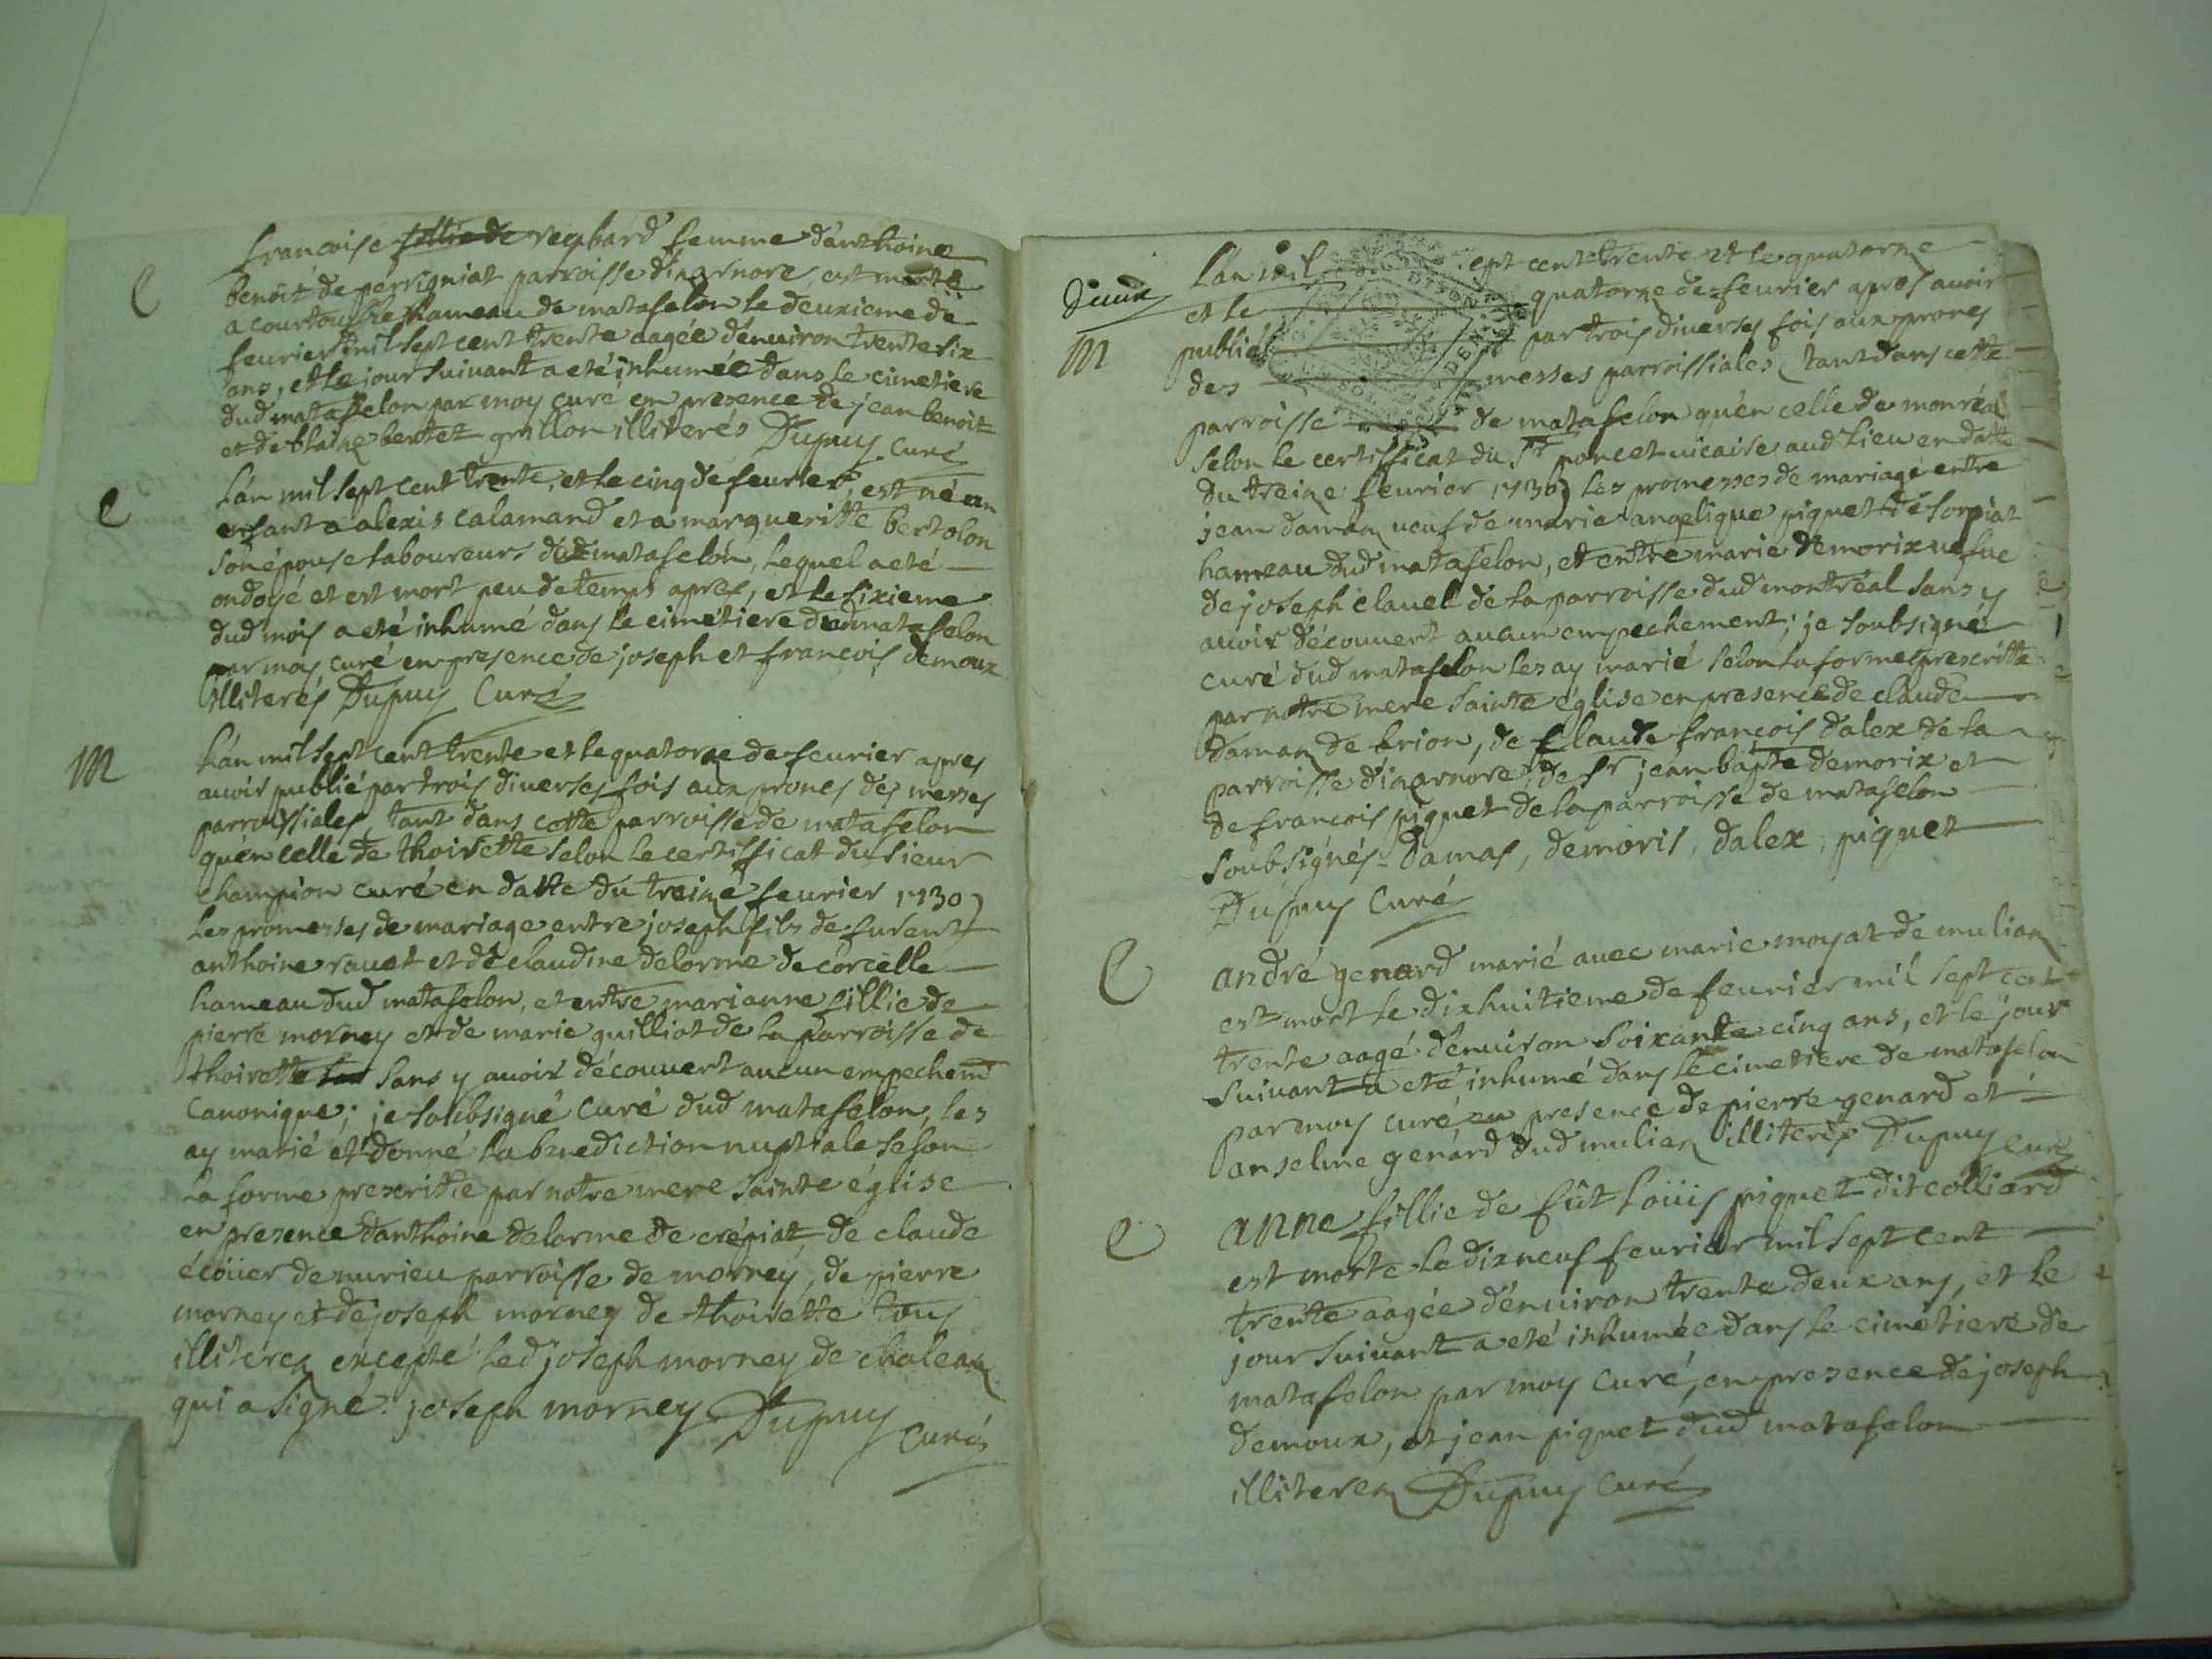 francoise fillie de reybard femme d'anthoine
e
benoit de perrigniat parroisse d'izarnore, est morte
a courtouphle hameau de matafelon le deuxieme de
feurier mil sept cent trente aagée d'enuiron trente six
ans, et le jour suiuant a eté inhumée dans le cimetiere
dud matafelon par moy curé en presence de jean benoit
et de blaise bertet grillon illiterés Dupuy curé
e
L'an mil sept cent trente, et le cinq de feurier, est né un
enfant a alexis calamand et a margueritte bertolon
son épouse laboureurs dud matafelon, lequel a eté
ondoyé et est mort peu de temps apres, et le sixieme
dud mois a eté inhumé dans le cimétiere dud matafelon
par moy curé en presence de joseph et françois demoux
illiterés Dupuy Curé
m
L'an mil sept cent trente et le quatorze de feurier apres
auoir publié par trois diuerses fois aux prones des messes
parroissiales, tant dans cette parroisse de matafelon
qu'en celle de thoirette selon le certifficat du sieur
champion curé en datte du treize feurier 1730)
les promesses de mariage entre joseph fils de furent
anthoine rauet et de claudine delorme de corcelle
hameau dud matafelon, et entre marianne fillie de
pierre morney et de marie guilliot de la parroisse de
thoirette sans y auoir découuert aucun empechemt
canonique; je soubsigné curé dud matafelon, les
ay marié et donné la benediction nuptiale selon
la forme prescritte par notre mere sainte église
en presence d'anthoine delorme de crépiat, de claude
écoüer de nurieu parroisse de mornéy, de pierre
morney et de joseph morney de thoirette tous
illiterez excepté led joseph morney de chaleaz
qui a signé. joseph morney Dupuy
Curé
deux
L'an mil sept cent trente et le quatorze
et le quatorze de feurier apres auoir
m
publié par trois diuerses fois aux prones
des messes parroissiales, tant dans cette
parroisse de matafelon qu'en celle de monréal
selon le certifficat du Sr poncet uicaire aud lieu en datte
du treize feurier 1730) les promesses de mariage entre
jean damaz ueuf de marie angelique piquet de sorpiat
hameau dud matafelon, et entre marie demorix uefue
de joseph clauel de la parroisse dud montréal sans y
auoir découuert aucun empechement; je soubsigné
curé dud matafelon les ay marié selon la forme prescritte
par notre mere sainte église en presence de claude
damaz de brion, de claude françois dalex de la
parroisse d'izarnore, de sr jean bapte demorix et
de francois piquet de la parroisse de matafelon
soubsignés. damas, demoris, dalex, piquet
Dupuy Curé
e
andré genard marié auec marie moyat de muliaz
est mort le dixhuitieme de feurier mil sept cent
trente aagé d'enuiron soixante cinq ans, et le jour
suiuant a eté inhumé dans le cimetiere de matafelon
par moy curé, en presence de pierre genard et
anselme genard dud muliez illiterés Dupuy curé
e
anne fillie de fût Loüis piquet dit colliard
est morte le dix neuf feurier mil sept cent
trente aagée d'enuiron trente deux ans, et le
jour suiuant a eté inhumée dans le cimétiere de
matafelon par moy curé, en presence de joseph
demoux, et jean piquet dud matafelon
illiterez Dupuy curé